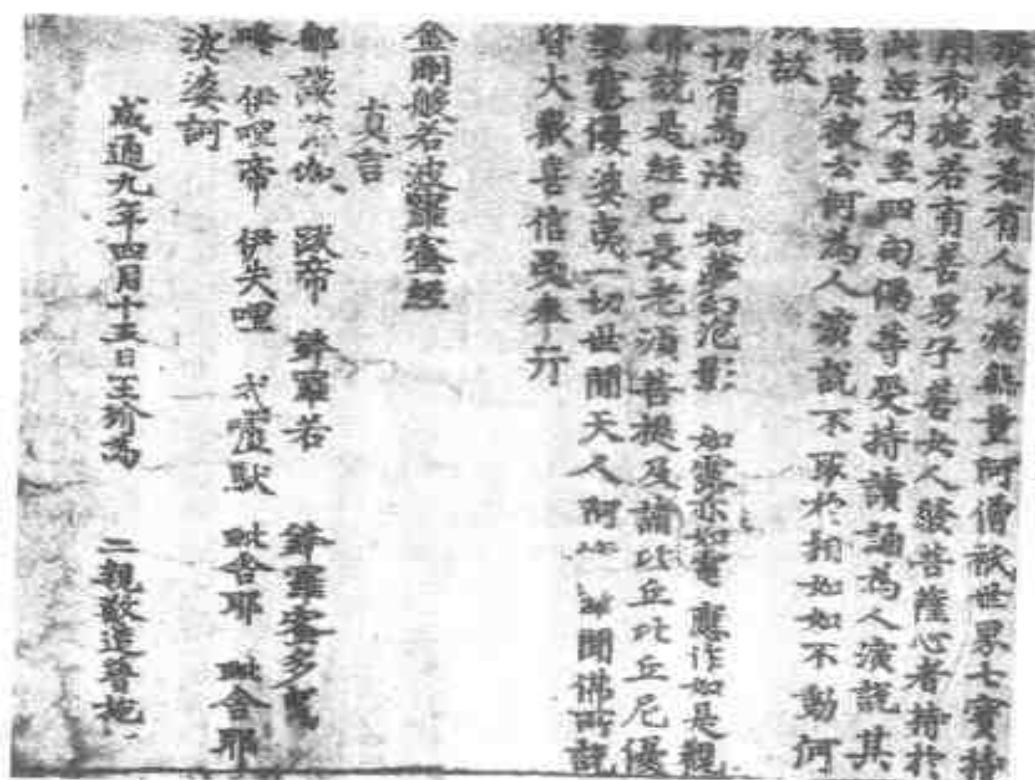 須菩提若有人以滿無量阿僧祇世界七寶持
用布施若有善男子善女人發菩薩心者持於
此經乃至四句偈等受持讀誦為人演說其
福勝彼云何為人演說不取於相如如不動何
以故
一切有為法 如夢幻泡影 如露亦如電 應作如是觀
佛說是經已長老須菩提及諸比丘比丘尼優
婆塞優婆夷一切世間天人阿修羅聞佛所說
皆大歡喜信受奉行
金剛般若波羅蜜經
真言
那謨 跋帝 鉢羅若 鉢羅蜜多曳
唵 伊哩帝 伊失哩 戍嚧馱 毗舍耶 毗舍耶
娑婆訶
咸通九年四月十五日王玠為 二親敬造普施